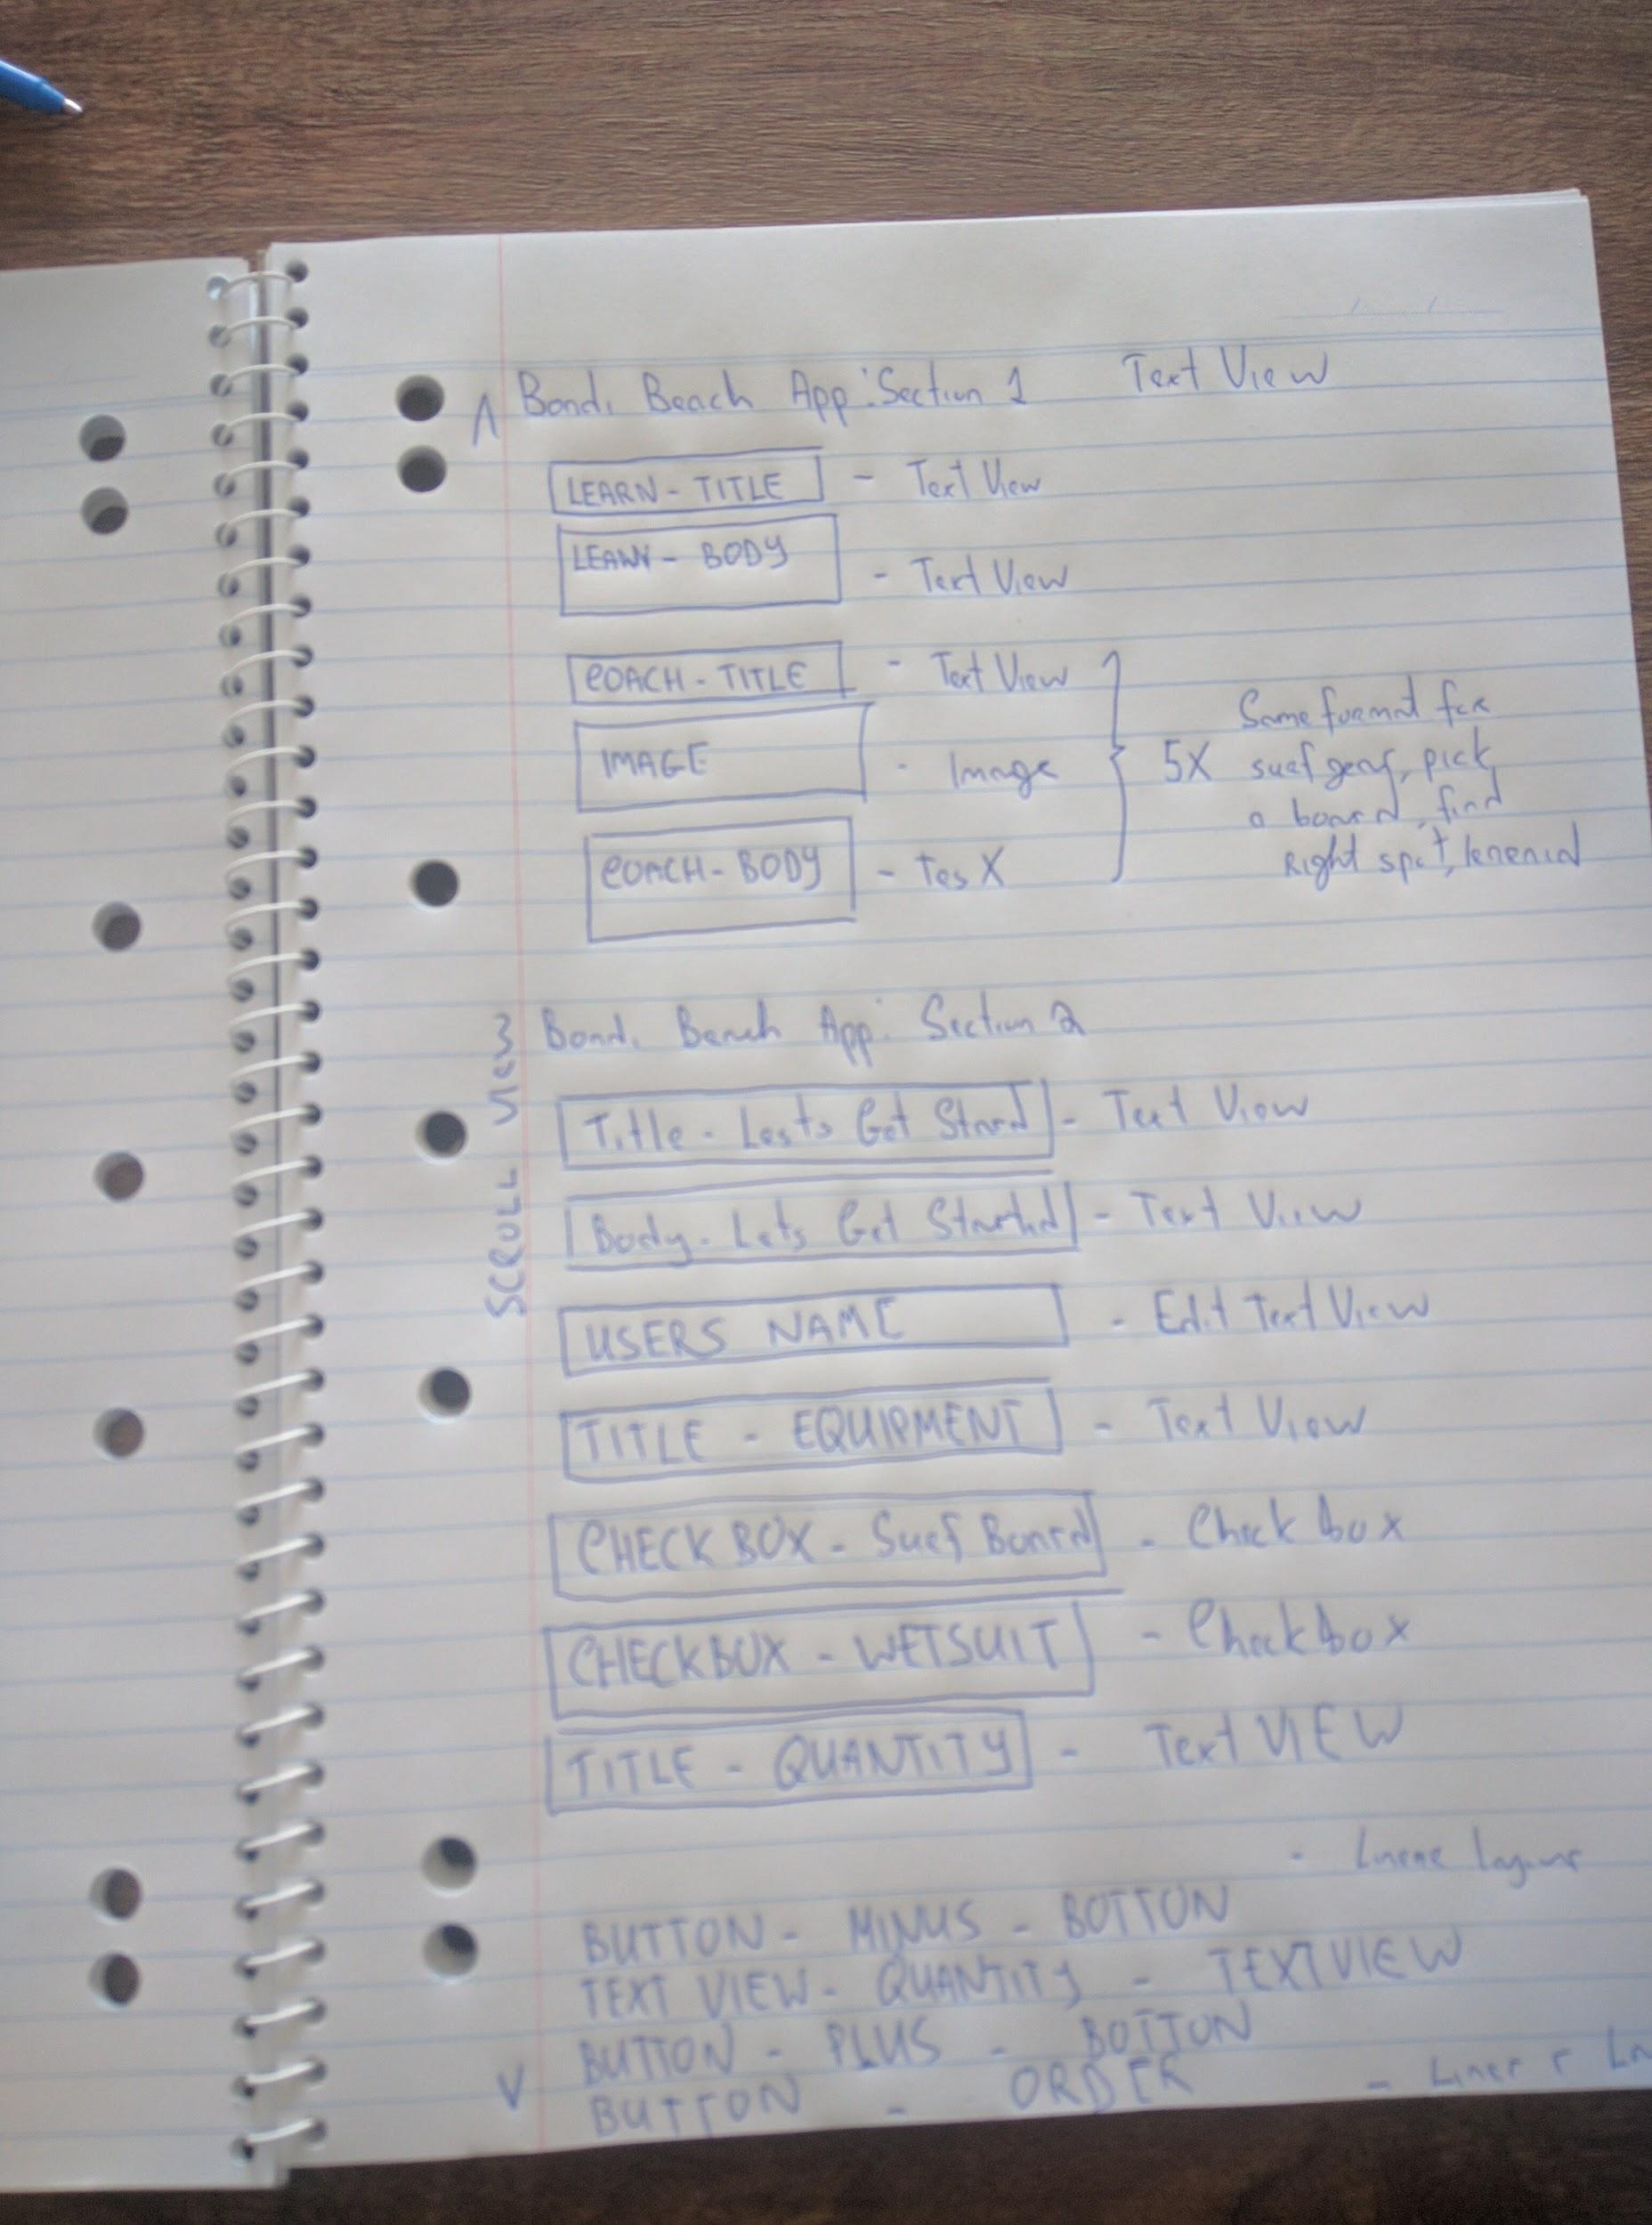 Bondi Beach App: Section 1 Text View
LEARN - TITLE - Text View
LEARN - BODY
- Text View
COACH - TITLE - Text View
Same format for
IMAGE - Image 5X surf gear, pick
a board, find
COACH - BODY - Tex
Right spot,
Bondi Beach App: Section 2
SCROLL VIEW
Title - Lets Get Stard - Text View
Body - Lets Get Started - Text View
USERS NAME - Edit Text View
TITLE - EQUIPMENT - Text View
CHECK BOX - Surf Board - Check box
CHECKBOX - WETSUIT - Checkbox
TITLE - QUANTITY - Text VIEW
- Linear Layout
BUTTON - MINUS - BOTTON
TEXT VIEW - QUANTITY - TEXTVIEW
BUTTON - PLUS - BOTTON
BUTTON - ORDER - Linear La